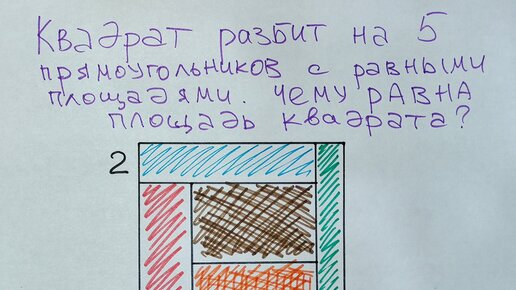 Квадрат разбит на 5
прямоугольников с равными
площадями. Чему РАВНА
площадь квадрата?
2